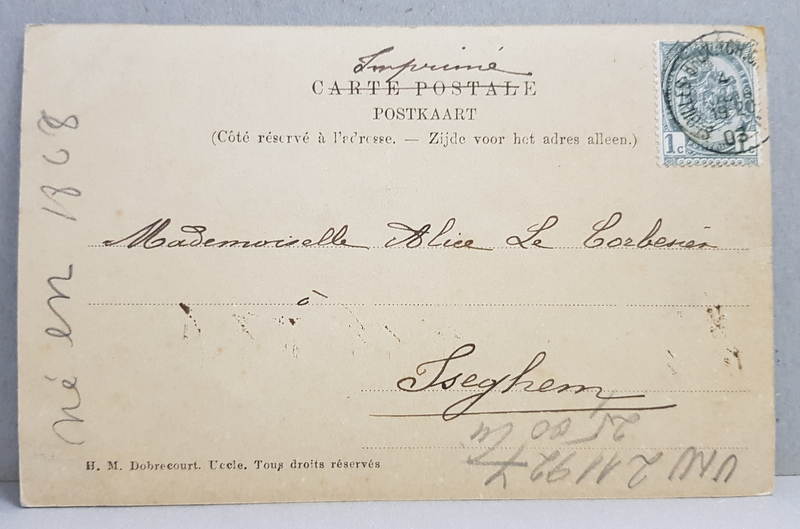 Imprimé
CARTE POSTALE
POSTKAART
(Côté réservé à l'adresse. — Zijde voor het adres alleen.)
1c
03
Mademoiselle Alice Le Corbesier
à
Iseghem
H. M. Dobrecourt. Uccle. Tous droits réservés
né en 1868